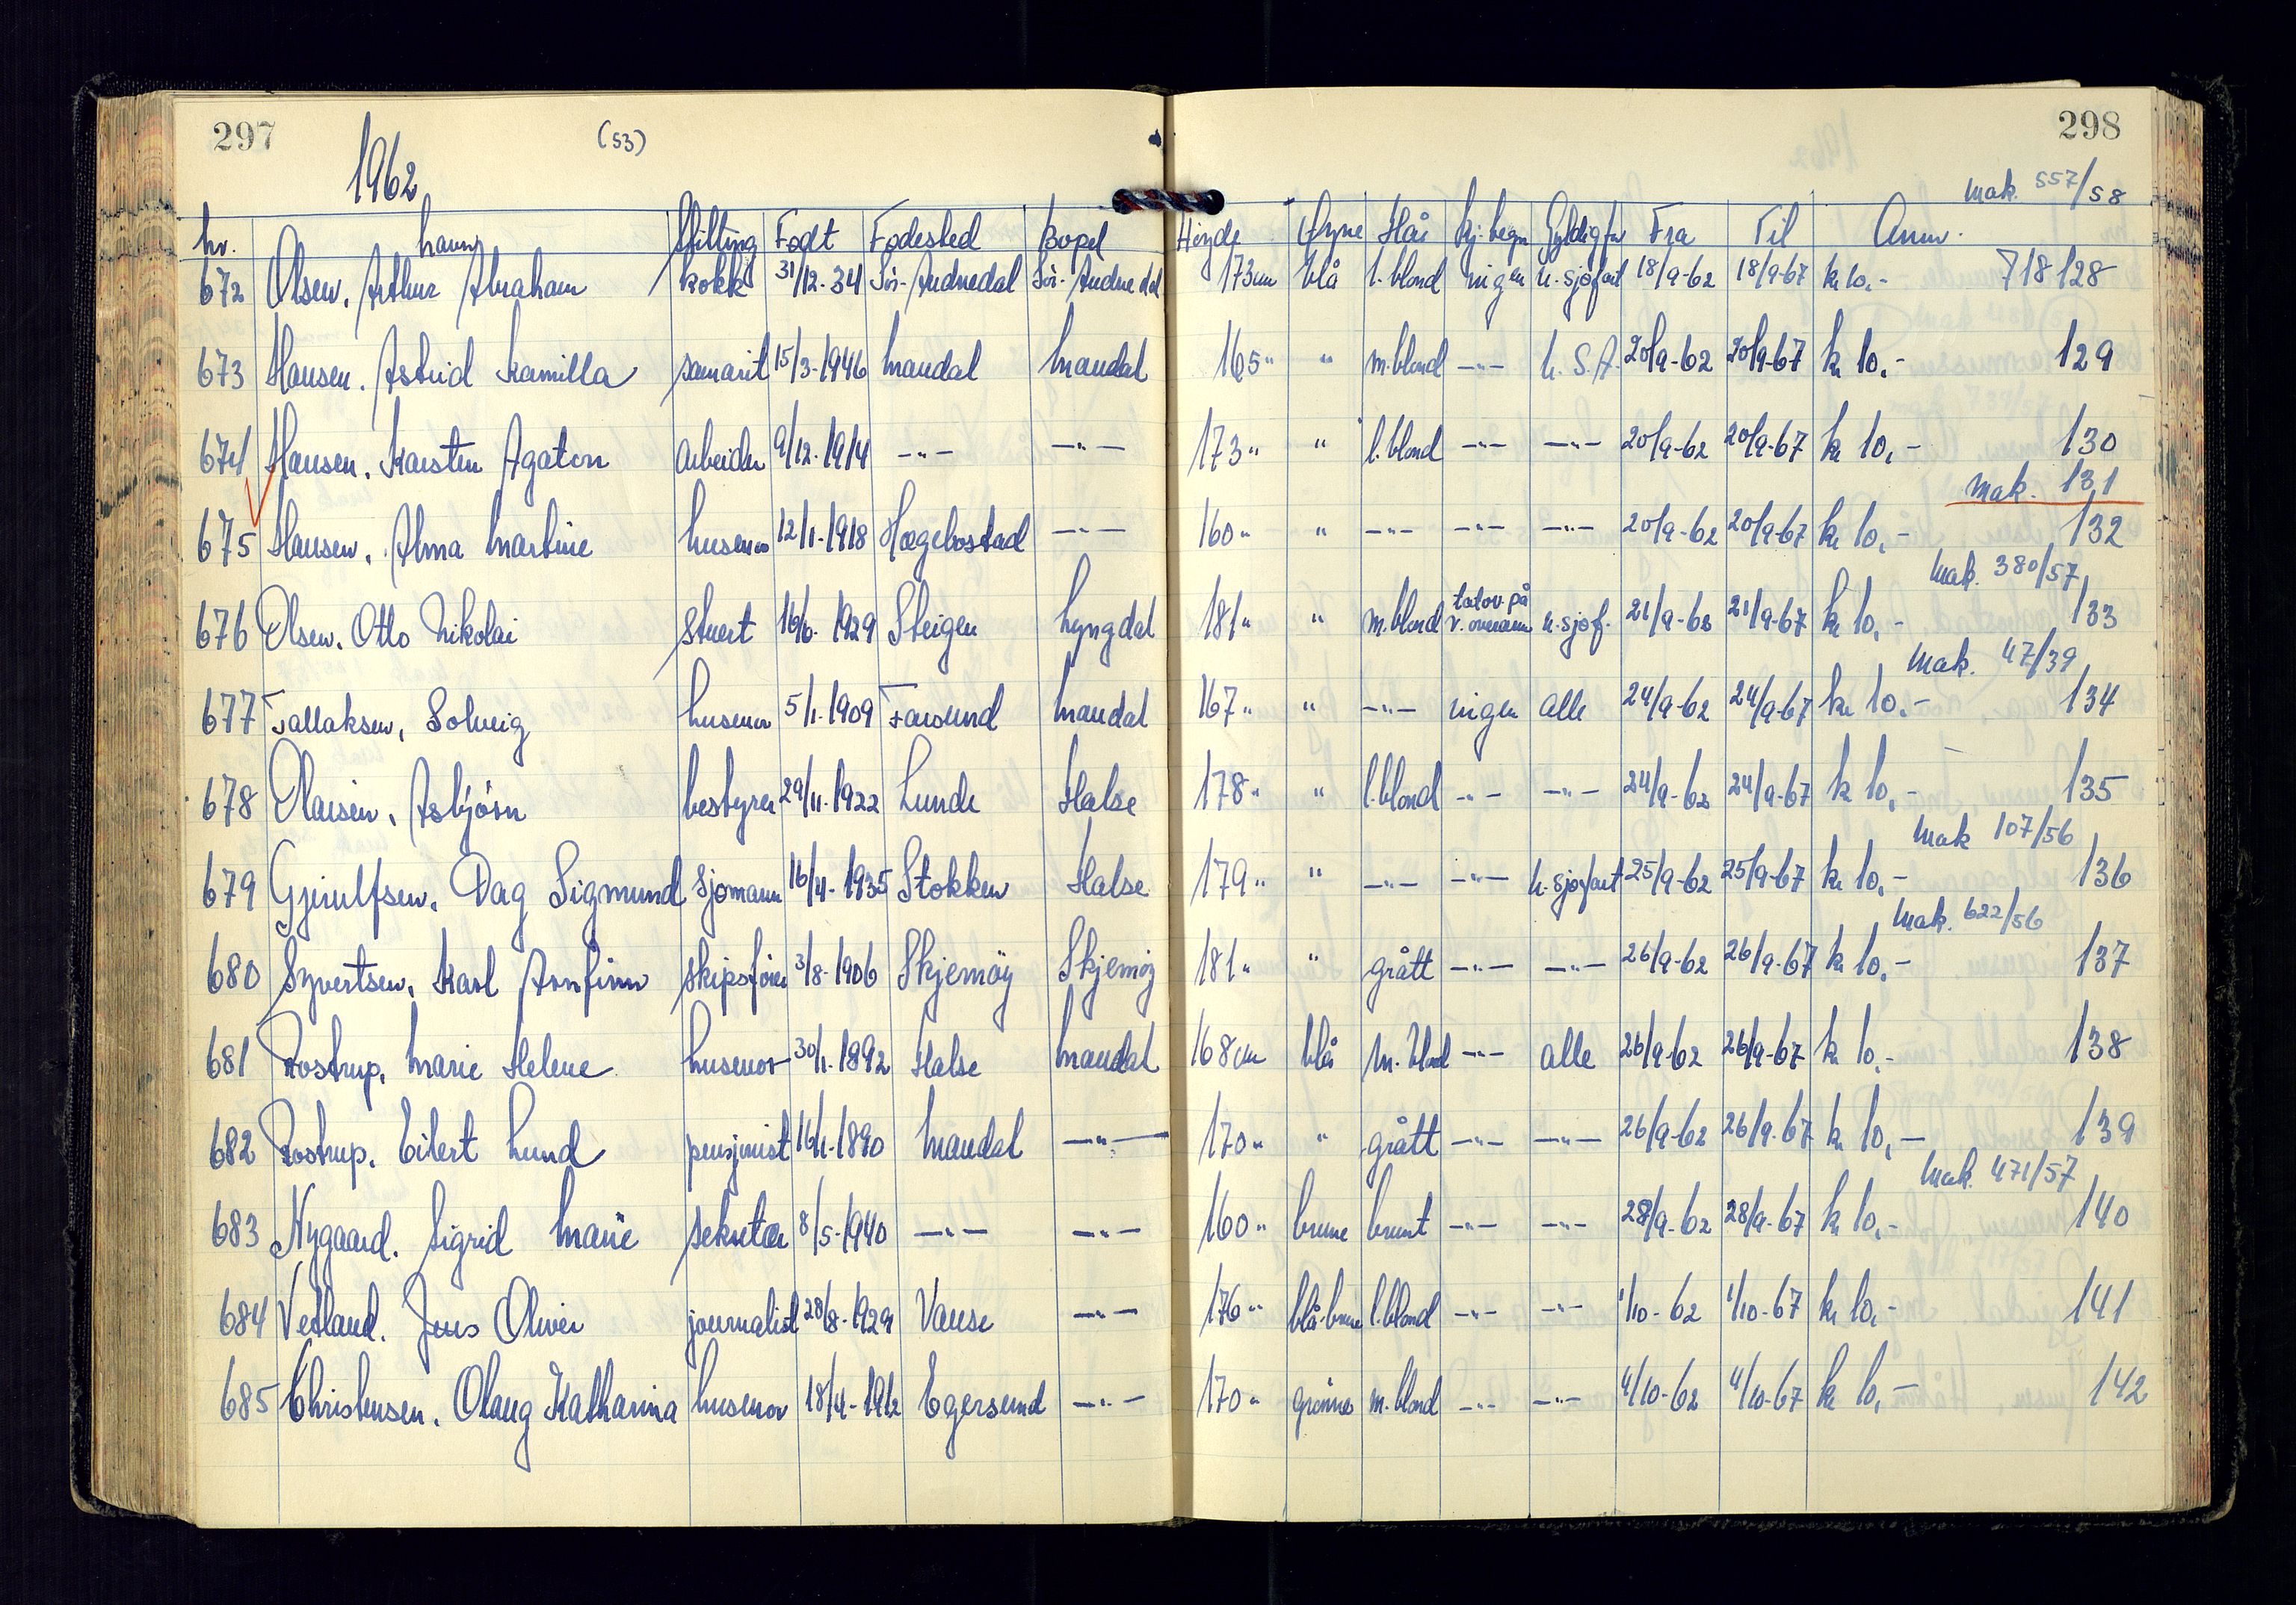 297 (53) 298
1962
mak. 557/58
Nr. Navn Stilling Født Fødested Bopel Høyde Øyne Hår Kj. tegn Gyldig for Fra Til Anm.
672 Olsen, Arthur Abraham kokk 31/12-34 Sør-Audnedal Sør-Audnedal 173 cm blå l.blond ingen u. sjøfart 18/9-62 18/9-67 kr 10,- 718128
673 Hansen, Astrid Kamilla samarit 15/3-1946 Mandal Mandal 165 " " m.blond -"- U.S.A. 20/9-62 20/9-67 kr 10,- 129
674 Hansen, Karsten Agaton arbeider 9/12-1914 -"- -"- 173 " " l.blond -"- -"- 20/9-62 20/9-67 kr 10,- 130
mak. 131
675 Hansen, Alma Martine husmor 12/1-1918 Hægebostad -"- 160 " " -"- -"- -"- 20/9-62 20/9-67 kr 10,- 132
mak. 380/57
676 Olsen, Otto Nikolai stuert 16/6-1929 Steigen Lyngdal 181 " " m.blond tatov. på v. overarm u. sjøf. 21/9-62 21/9-67 kr 10,- 133
mak. 47/39
677 Tallaksen, Solveig husmor 5/1-1909 Farsund Mandal 167 " " -"- ingen alle 24/9-62 24/9-67 kr 10,- 134
678 Olausen, Asbjørn bestyrer 29/11-1922 Lunde Halse 178 " " l.blond -"- -"- 24/9-62 24/9-67 kr 10,- 135
mak 107/56
679 Gjerulfsen, Dag Sigmund sjømann 16/4-1935 Stokken Halse 179 " " -"- -"- u. sjøfart 25/9-62 25/9-67 kr 10,- 136
mak. 622/56
680 Syvertsen, Karl Arnfinn skipsfører 3/8-1906 Skjernøy Skjernøy 181 " " grått -"- -"- 26/9-62 26/9-67 kr 10,- 137
681 Rostrup, Marie Helene husmor 30/1-1892 Halse Mandal 168 cm blå m. blond -"- alle 26/9-62 26/9-67 kr 10,- 138
682 Rostrup, Eilert Lund pensjonist 16/1-1890 Mandal -"- 170 " " grått -"- -"- 26/9-62 26/9-67 kr 10,- 139
mak. 471/57
683 Nygaard, Sigrid Marie sekretær 8/5-1940 -"- -"- 160 " brune brunt -"- -"- 28/9-62 28/9-67 kr 10,- 140
684 Vetland, Jens Oliver journalist 28/8-1929 Vanse -"- 176 " blå-brune l.blond -"- -"- 1/10-62 1/10-67 kr 10,- 141
685 Christensen, Olaug Katharina husmor 18/4-1912 Egersund -"- 170 " grønne m.blond -"- -"- 4/10-62 4/10-67 kr 10,- 142